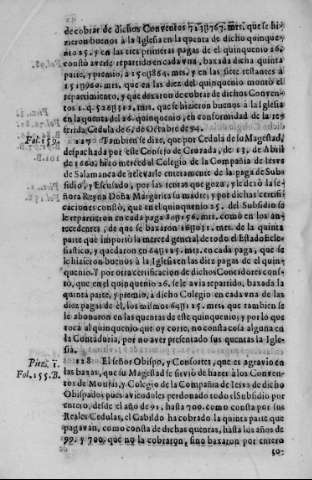 de cobrar de dichos Conventos 71 mrs. que se hi-
zieron buenos à la Iglesia en la quenta de dicho quinque-
nio 25. y en las tres primeras pagas del quinquenio 26.
constò averle repartido en cada vna, baxada dicha quinta
parte, y premio, à mrs. y en las siete restantes à
mrs. y en las diez de avia importò monto el
repartimiento, y que dexaron de cobrar de dichos Conven-
tos mrs. que se hizieron buenos à la Iglesia
en la quenta del 26. quinquenio, en conformidad de la re-
ferida Cedula de 6. de Octubre de 94.
Fol. 159. Tambien se dize, que por Cedula de su Magestad,
despachada por este Consejo de Cruzada, de 13. de Abril
de 1660. hizo merced al Colegio de la Compañia de Iesvs
de Salamanca de relevarle enteramente de la paga de Subsi-
dio, y Escusado, por las rentas que goza, y le diò la Se-
ñora Reyna Doña Margarita su madre; y por dichas certifi-
caciones constò, que en el quinquenio 25. del Subsidio se
le repartieron en cada paga mrs. como en los an-
tecedentes, de que se baxaron mrs. de la quinta
parte que importò la merced general de todo el Estado Ecle-
siastico, y quedaron en mrs. en cada paga, que se
le hizieron buenos à la Iglesia en las diez pagas del quin-
quenio. Y por otra certificacion de dichos Contadores cons-
tò, que en el quinquenio 26. se le avia repartido, baxada la
quinta parte, y premio, à dicho Colegio en cada vna de las
diez pagas de el, los mismos mrs. que tambien se
le abonaron en las quentas de este quinquenio; y por lo que
toca al quinquenio que oy corre, no consta cosa alguna en
la Contaduria, por no aver presentado sus quentas la Igle-
sia.
Pieza 1. El señor Obispo, y Consortes, que es agravio en
Fol. 155. B. las baxas, que su Magestad se sirviò de hazer à los Conven-
tos de Monjas, y Colegio de la Compañia de Iesvs de dicho
Obispado; pues aviendoles perdonado todo el Subsidio por
entero, desde el año de 91. hasta 700. como consta por sus
Reales Cedulas, el Cabildo ha cobrado la quinta parte que
pagavan, como consta de dichas quentas, hasta los años de
99. y 700. que no la cobraron, sino baxaron por entero